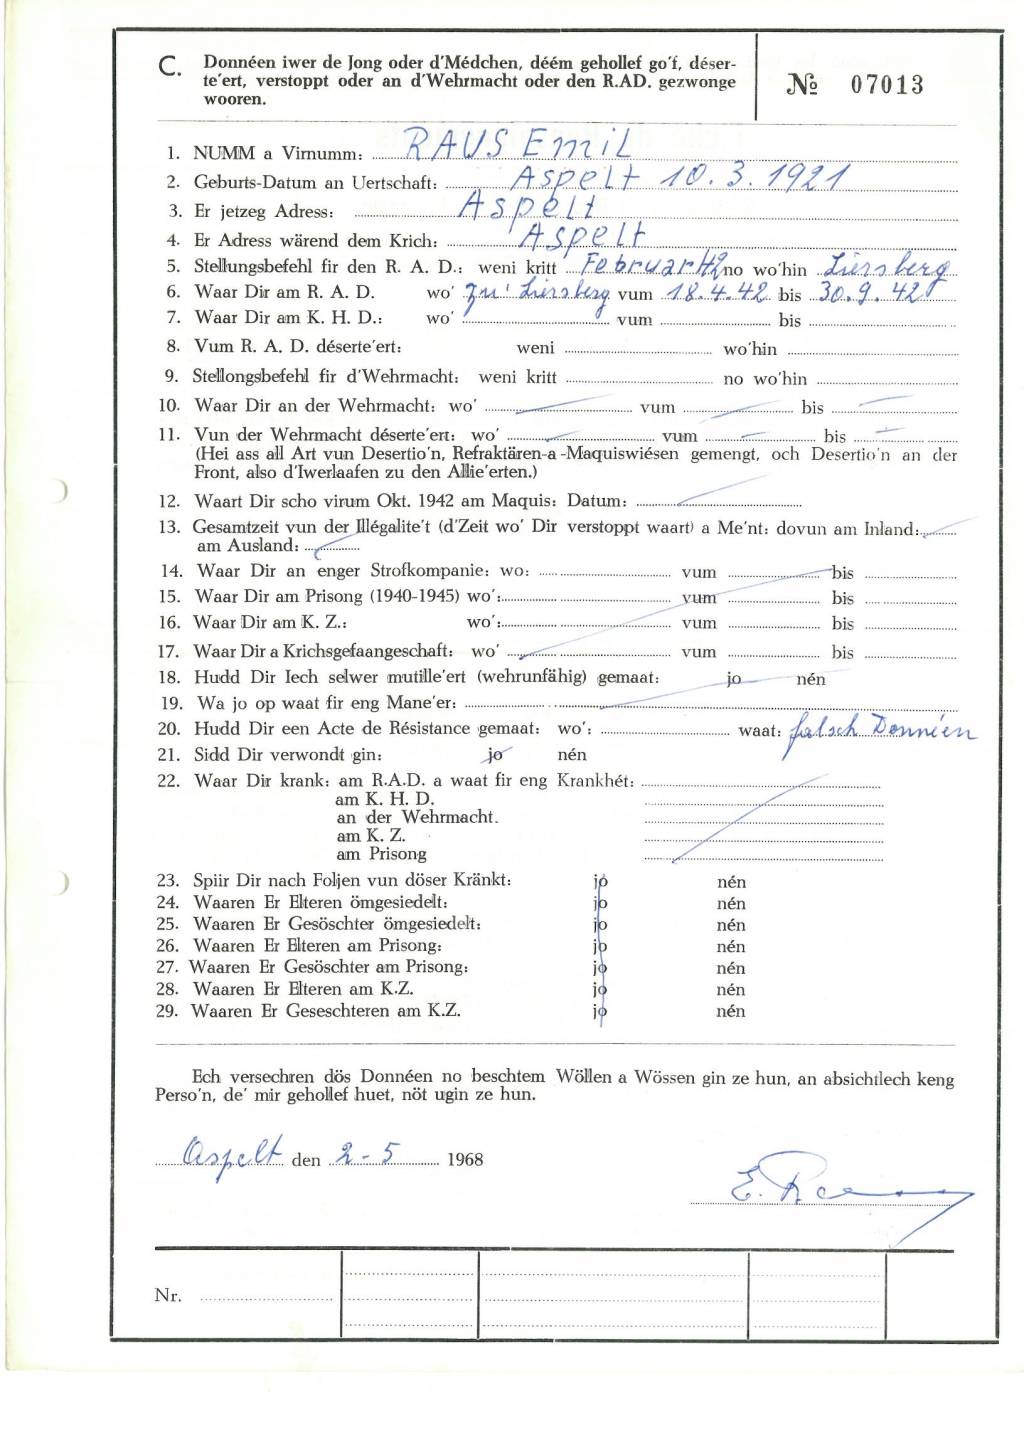 C. Donnéen iwer de Jong oder d'Médchen, déém gehollef go'f, déser-
te'ert, verstoppt oder an d'Wehrmacht oder den R.AD. gezwonge
wooren.
№ 07013
1. NUMM a Virnumm: RAUS Emil
2. Geburts-Datum an Uertschaft: Aspelt 10.3.1921
3. Er jetzeg Adress: Aspelt
4. Er Adress wärend dem Krich: Aspelt
5. Stellungsbefehl fir den R. A. D.: weni kritt Februar 42 no wo'hin Liersberg
6. Waar Dir am R. A. D. wo' zu' Liersberg vum 18.4.42 bis 30.9.42
7. Waar Dir am K. H. D.: wo' vum bis
8. Vum R. A. D. déserte'ert: weni wo'hin
9. Stellongsbefehl fir d'Wehrmacht: weni kritt no wo'hin
10. Waar Dir an der Wehrmacht: wo' vum bis
11. Vun der Wehrmacht déserte'ert: wo' vum bis
(Hei ass all Art vun Desertio'n, Refraktären-a-Maquiswiésen gemengt, och Desertio'n an der
Front, also d'Iwerlaafen zu den Allie'erten.)
12. Waart Dir scho virum Okt. 1942 am Maquis: Datum:
13. Gesamtzeit vun der Illégalite't (d'Zeit wo' Dir verstoppt waart) a Me'nt: dovun am Inland:
am Ausland:
14. Waar Dir an enger Strofkompanie: wo: vum bis
15. Waar Dir am Prisong (1940-1945) wo': vum bis
16. Waar Dir am K. Z.: wo': vum bis
17. Waar Dir a Krichsgefaangeschaft: wo' vum bis
18. Hudd Dir Iech selwer mutille'ert (wehrunfähig) gemaat: jo nén
19. Wa jo op waat fir eng Mane'er:
20. Hudd Dir een Acte de Résistance gemaat: wo': waat: falsch Donnéen
21. Sidd Dir verwondt gin: jo nén
22. Waar Dir krank: am R.A.D. a waat fir eng Krankhét:
am K. H. D.
an der Wehrmacht.
am K. Z.
am Prisong
23. Spiir Dir nach Foljen vun döser Kränkt: jo nén
24. Waaren Er Elteren ömgesiedelt: jo nén
25. Waaren Er Gesöschter ömgesiedelt: jo nén
26. Waaren Er Elteren am Prisong: jo nén
27. Waaren Er Gesöschter am Prisong: jo nén
28. Waaren Er Elteren am K.Z. jo nén
29. Waaren Er Geseschteren am K.Z. jo nén
Ech versechren dös Donnéen no beschtem Wöllen a Wössen gin ze hun, an absichtlech keng
Perso'n, de' mir gehollef huet, nöt ugin ze hun.
Aspelt den 2-5 1968
E. Raus
Nr.